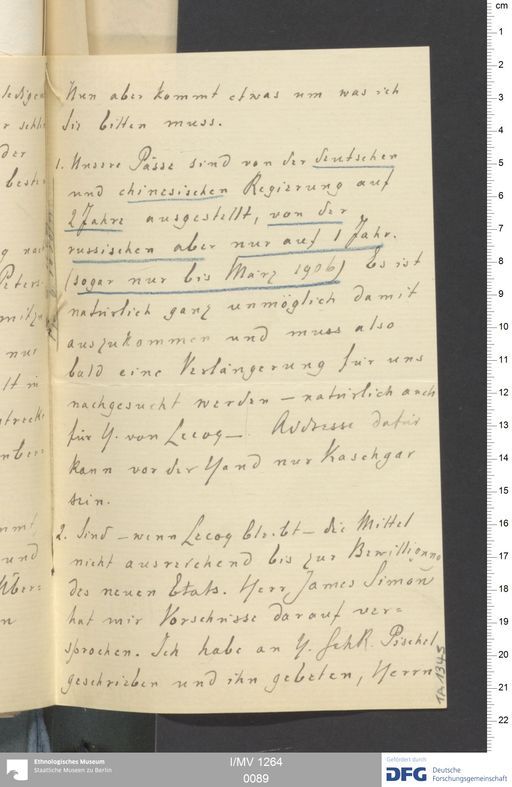 Nun aber kommt etwas um was ich
Sie bitten muss.
1. Unsere Pässe sind von der deutschen
und chinesischen Regierung auf
2 Jahre ausgestellt, von der
russischen aber nur auf 1 Jahr.
(sogar nur bis März 1906) Es ist
natürlich ganz unmöglich damit
auszukommen und muss also
bald eine Verlängerung für uns
nachgesucht werden – natürlich auch
für H. von Lecoq –. Addresse dafür
kann vor der Hand nur Kaschgar
sein.
2. Sind – wenn Lecoq bleibt – die Mittel
nicht ausreichend bis zur Bewilligung
des neuen Etats. Herr James Simon
hat mir Vorschüsse darauf ver=
sprochen. Ich habe an H. GehR. Pischel
geschrieben und ihn gebeten, Herrn
TA 1345
der
nur
und
Über=
Ethnologisches Museum
Staatliche Museen zu Berlin
I/MV 1264
0089
Gefördert durch
DFG Deutsche
Forschungsgemeinschaft
cm
1
2
3
4
5
6
7
8
9
10
11
12
13
14
15
16
17
18
19
20
21
22